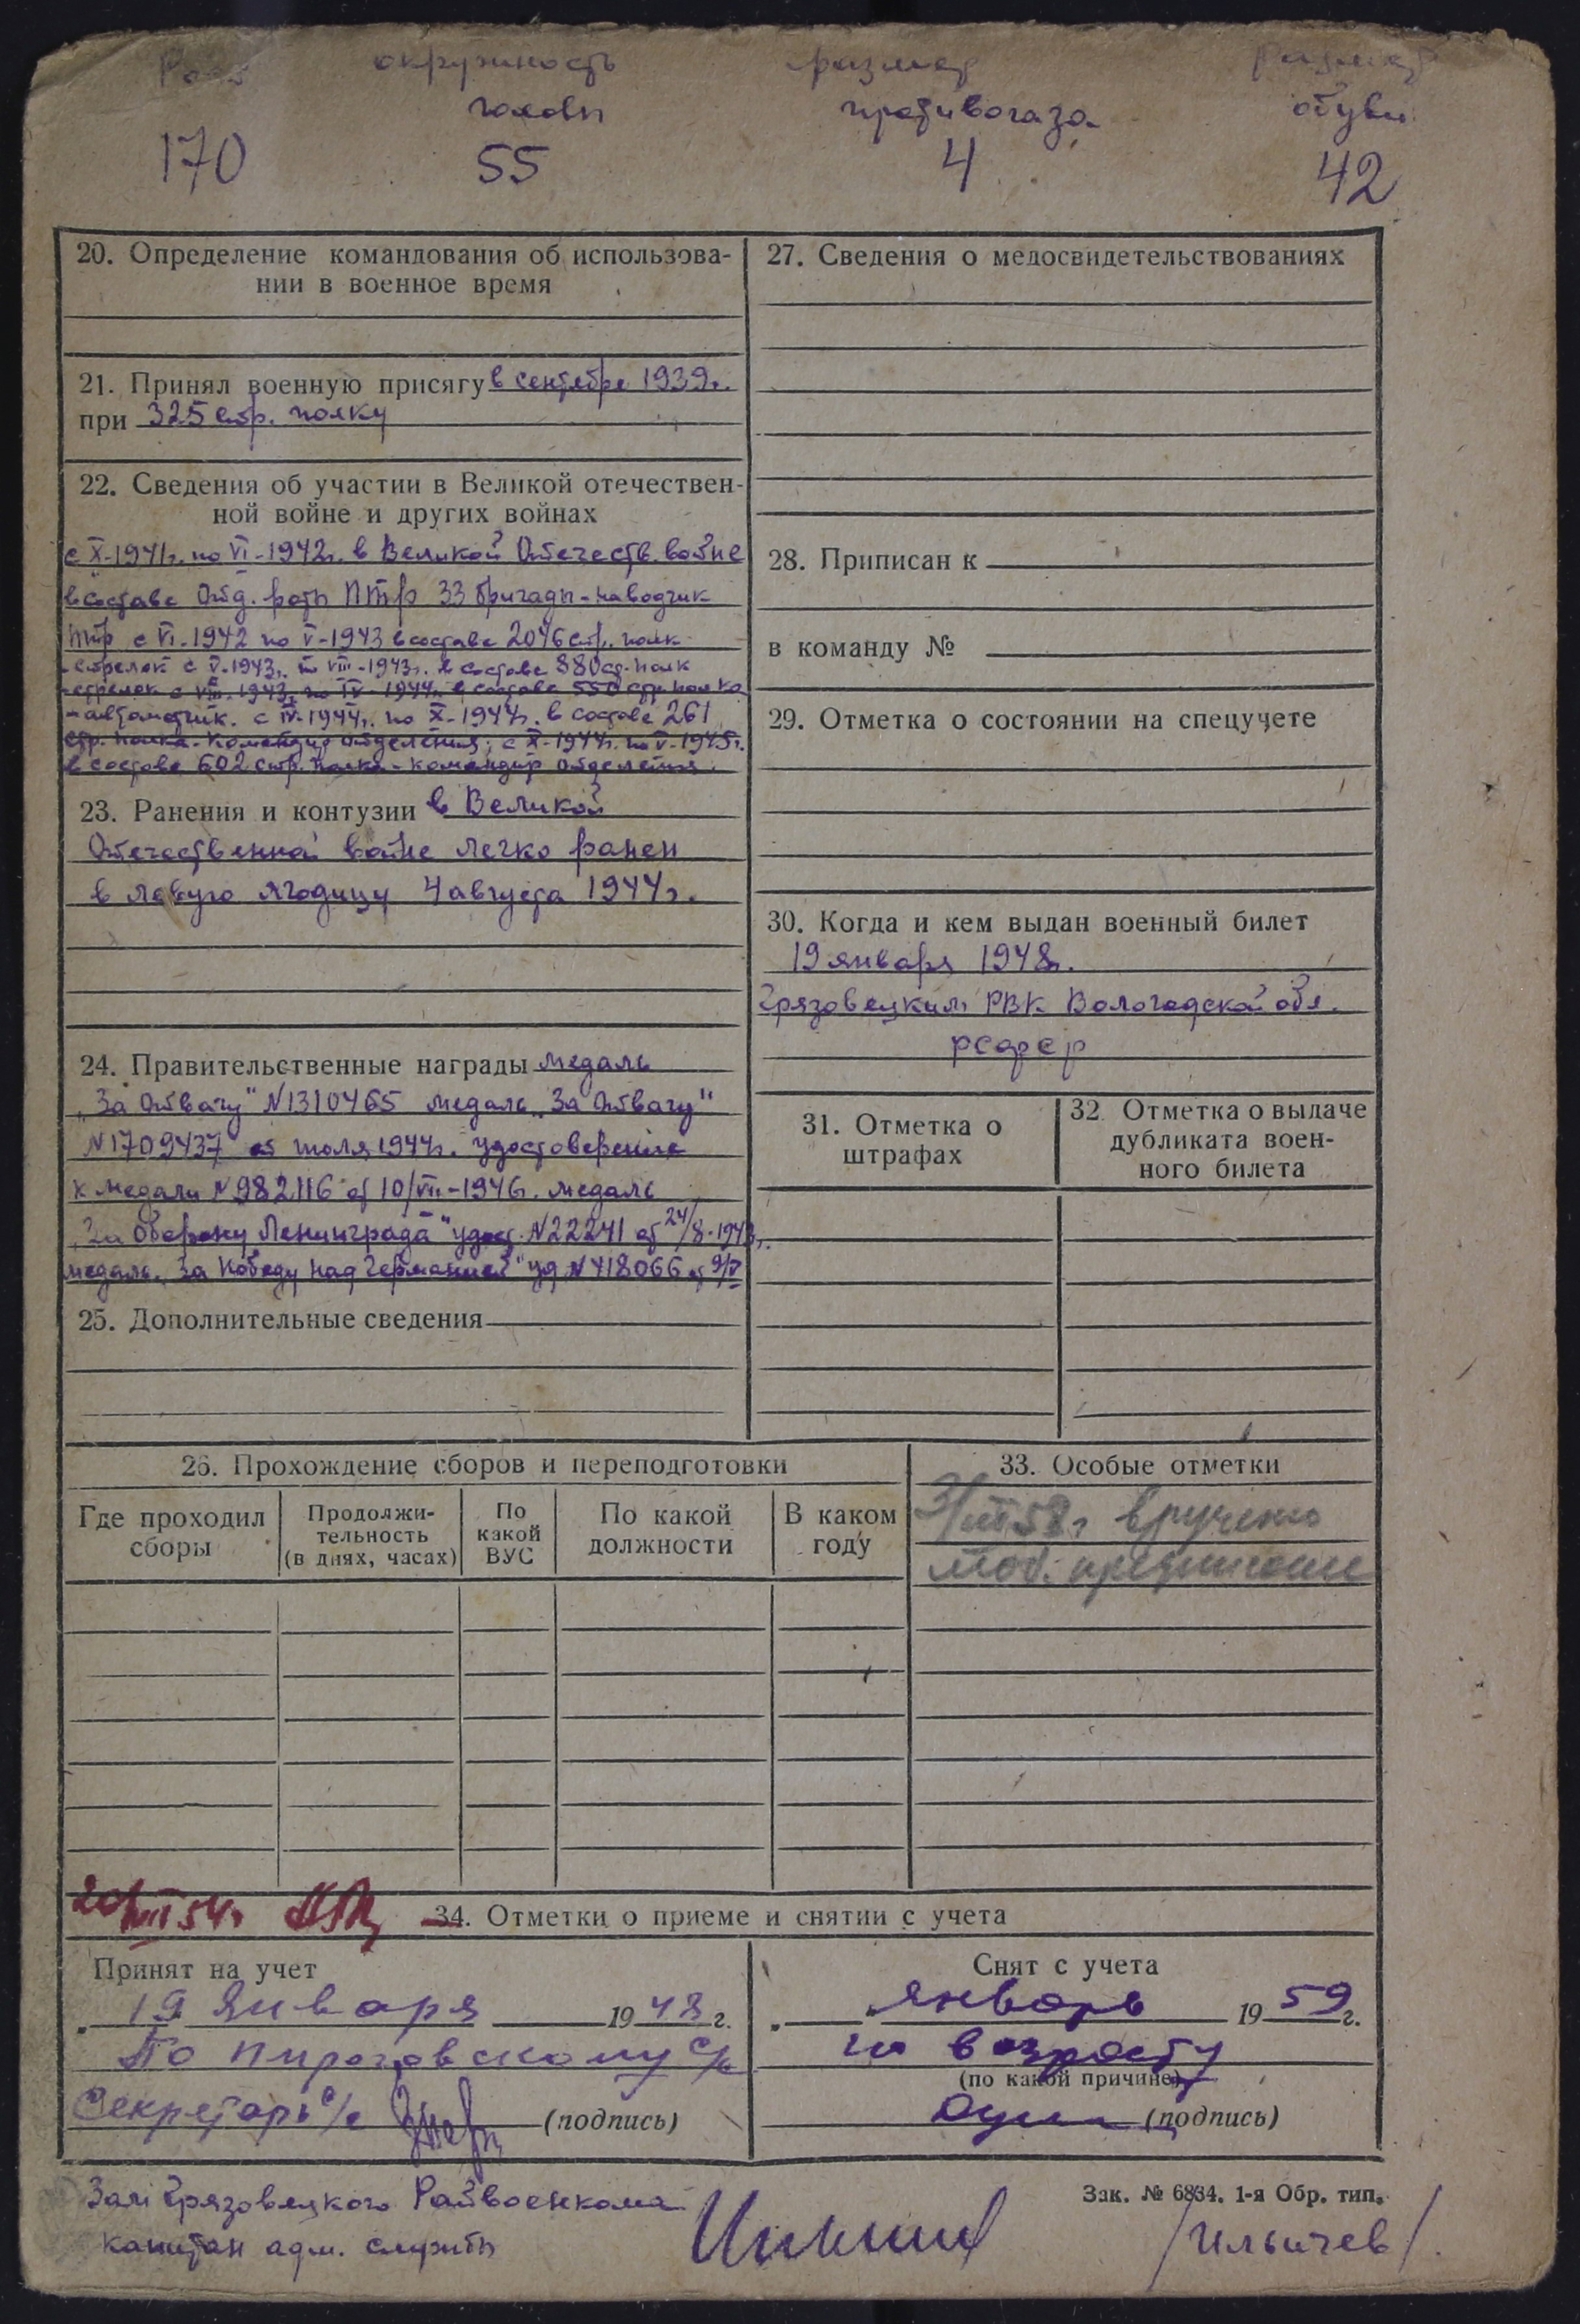 Рост окружность размер размер
головы противогаза обуви
170 55 4 42
20. Определение командования об использова-
нии в военное время
21. Принял военную присягу в сентябре 1939г.
при 325 стр. полку
22. Сведения об участии в Великой отечествен-
ной войне и других войнах
с X-1941г. по VI-1942г. в Великой Отечеств. войне
в составе Отд. роты ПТР 33 бригады - наводчик
птр с VI-1942 по V-1943 в составе 2046 стр. полк
- стрелок с V-1943г. по VIII-1943г. в составе 880 ст. полк
- стрелок с VIII-1943г. по IV-1944г. в составе 550 стр полка
- автоматчик. с IV-1944г. по X-1944г. в составе 261
стр. полка - командир отделения; с X-1944г. по V-1945г.
в составе 602 стр. полка - командир отделения.
23. Ранения и контузии в Великой
Отечественной войне легко ранен
в левую ягодицу 4 августа 1944г.
24. Правительственные награды медаль
„За Отвагу" №1310465 медаль „За Отвагу"
№1709437 от июля 1944г. удостоверение
к медали №982116 от 10/VII-1946г. медаль
„За Оборону Ленинграда" удост. №22241 от 24/8-1943г.
медаль „За победу над Германией" уд №418066 от 9/V
25. Дополнительные сведения
27. Сведения о медосвидетельствованиях
28. Приписан к
в команду №
29. Отметка о состоянии на спецучете
30. Когда и кем выдан военный билет
19 января 1948г.
Грязовецким РВК Вологодской обл.
РСФСР
31. Отметка о
штрафах
32. Отметка о выдаче
дубликата воен-
ного билета
26. Прохождение сборов и переподготовки
Где проходил
сборы
Продолжи-
тельность
(в днях, часах)
По
какой
ВУС
По какой
должности
В каком
году
33. Особые отметки
3/III 58г вручено
моб. предписание
20/VIII 54г
34. Отметки о приеме и снятии с учета
Принят на учет
„ 19 Января 1948 г.
По Пироговскому с/с
Секретарь с/с (подпись)
Снят с учета
„ " январь 1959 г.
по возрасту
(по какой причине)
(подпись)
Зам Грязовецкого Райвоенкома
капитан адм. службы
/Ильичев/.
Зак. № 6834. 1-я Обр. тип.